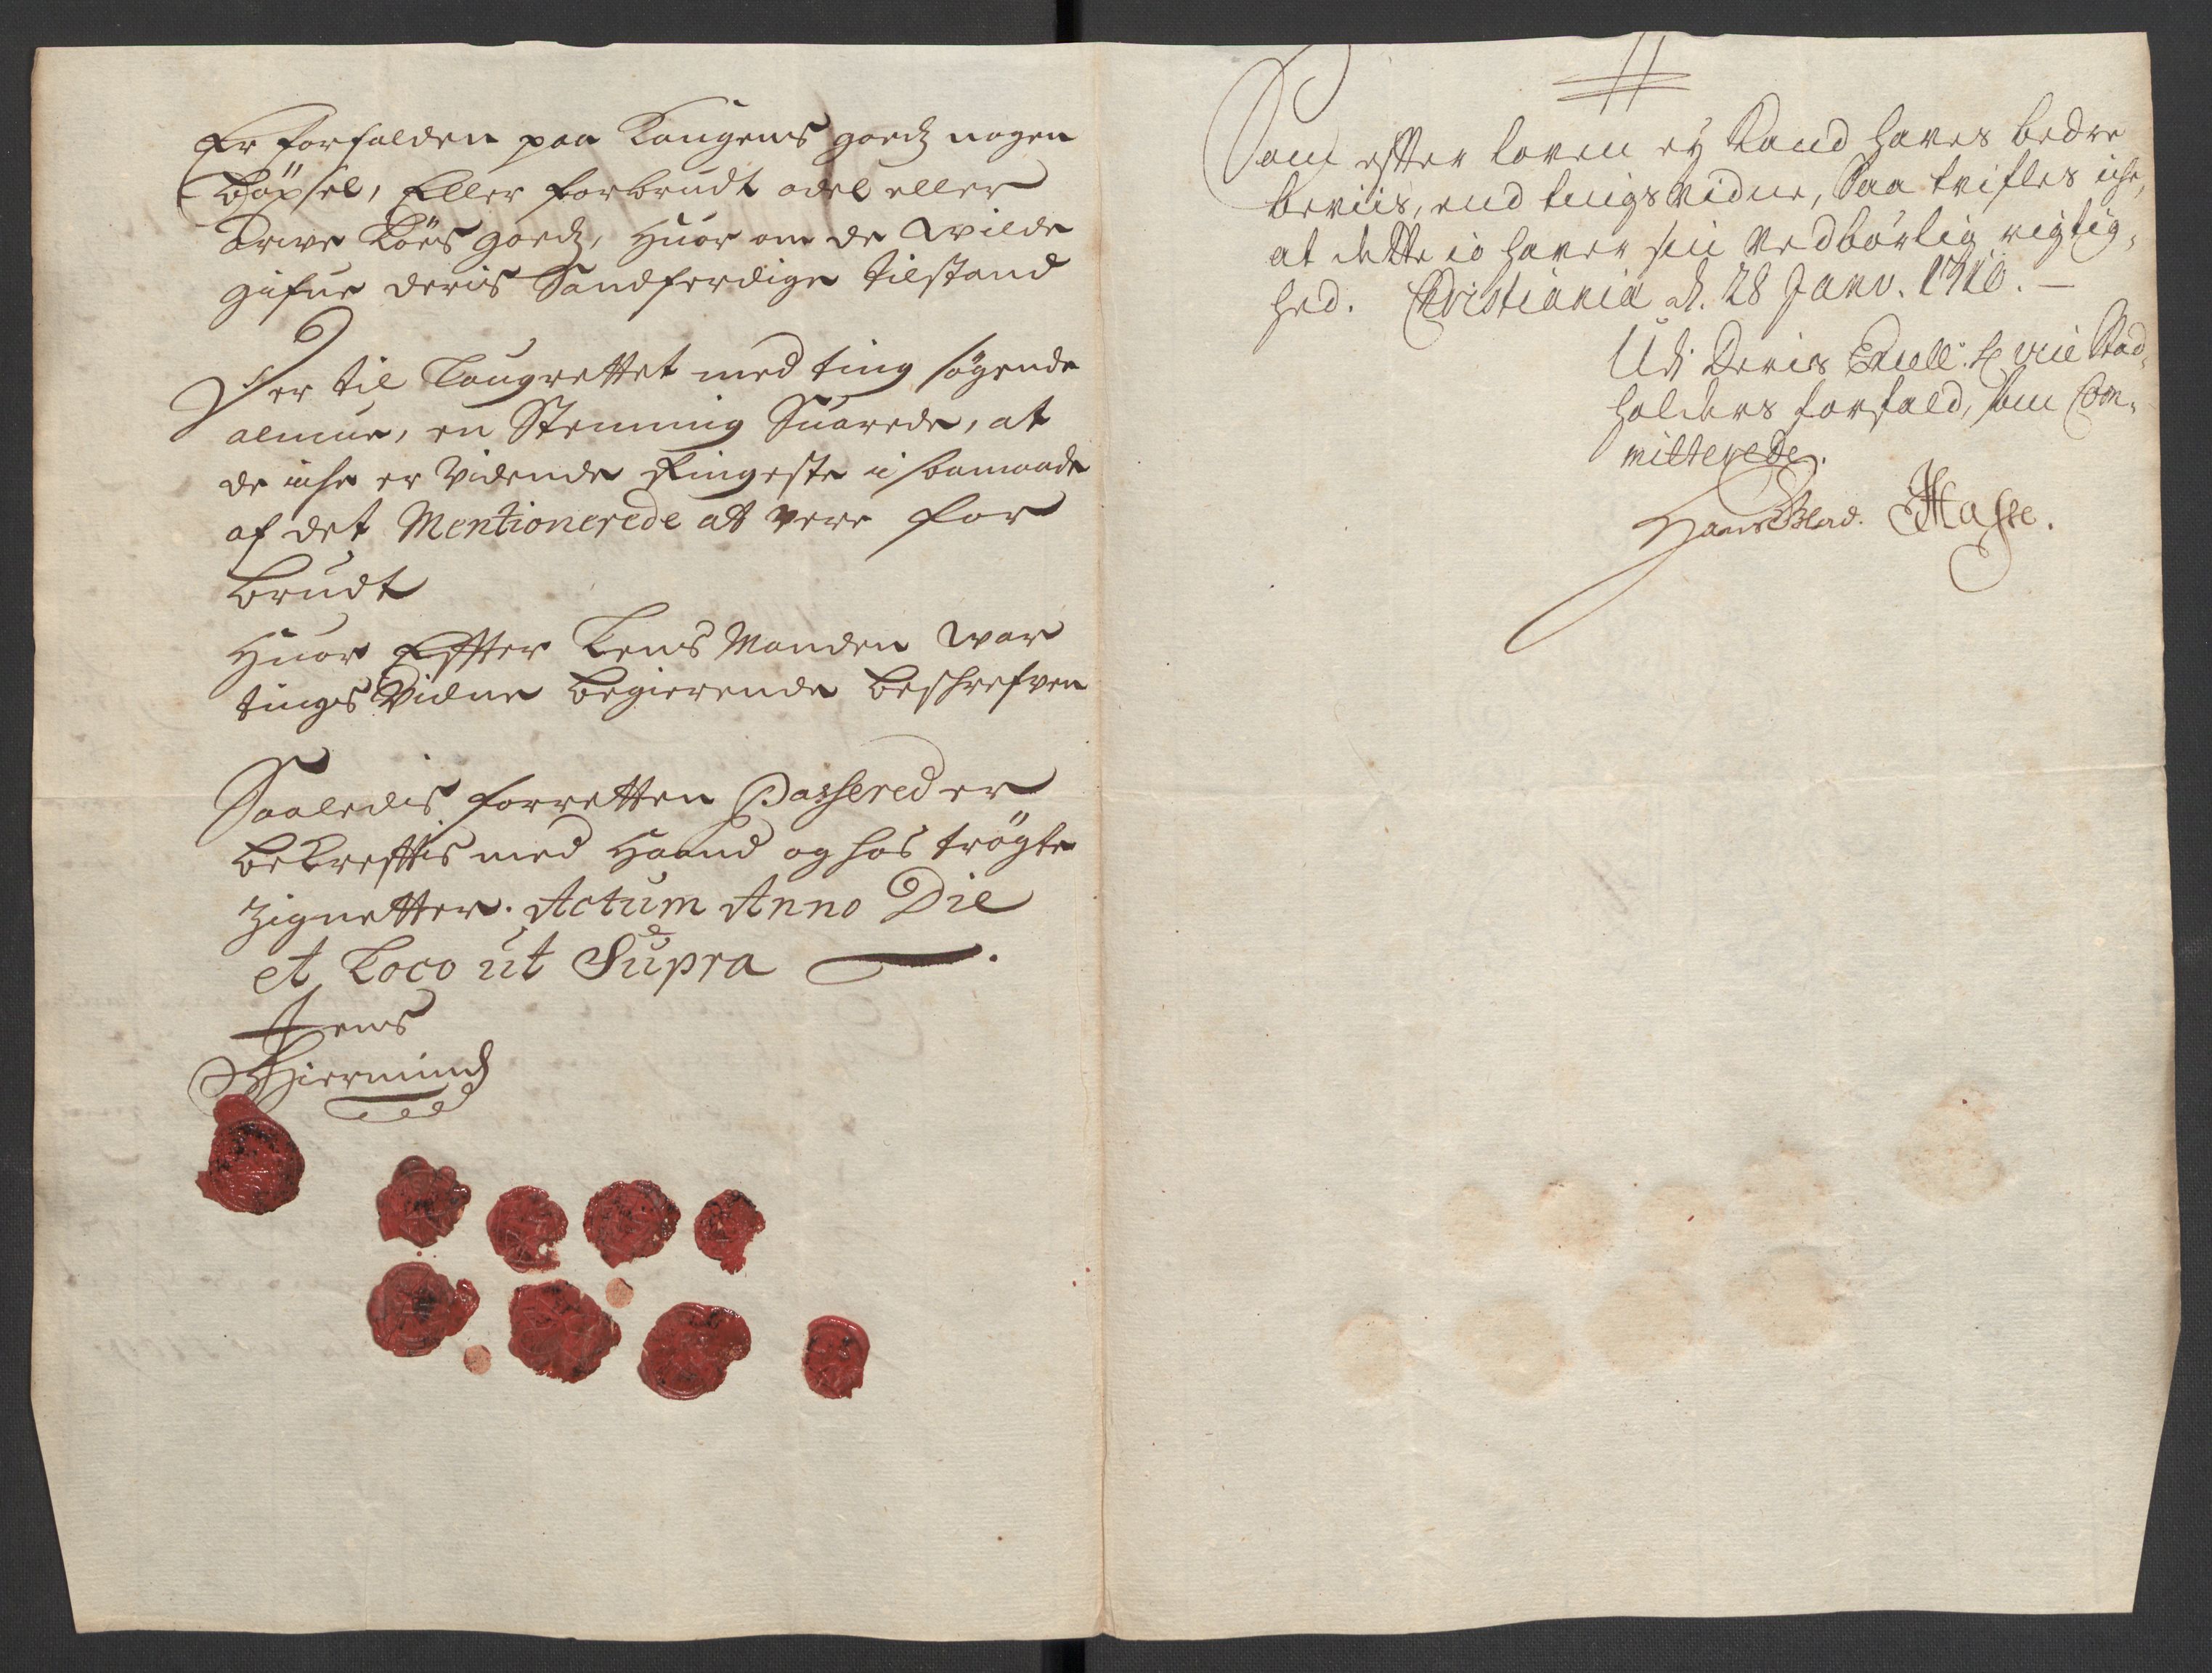 Er forfalden paa Kongens goedz nogen
bøxsel, Eller forbrudt odel eller
arwe Køes goedz, Huor om de wilde
gifue deris Sandferdige tilstand
Her til Laugrettet med ting søgende
almue, en Stemmig Suarede, at
de iche er vidende Ringeste i saamaade
af det Mentionerede att vere for
brudt
Huor Effter Lens Manden war
tings Vidne begierende beskrefven
Saaledis forretten Passered er
bekrefftis med Haand og hos trøgte
Zignetter. Actum Anno Die
et Loco ut Supra
Jens
Biermind
Som effter loven ey Kand haves bedre
beviis, end tingsvidne, Saa tvifles iche,
at dette io haver sin Vedbørlig rigtig-
hed. Christiania d. 28 Janv. 1710.
Udi Deris Excell: H vice Stad-
holders forfald, som Com-
mitterede.
Hans Blad. JHasse.